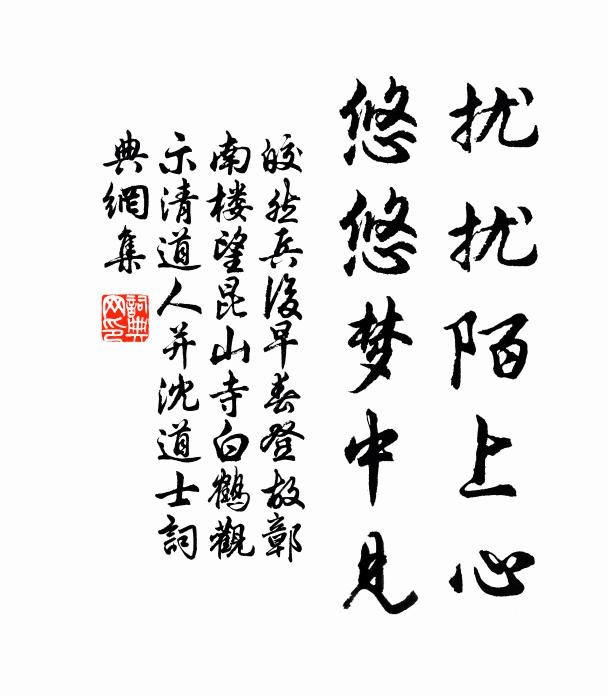 扰扰陌上心
悠悠梦中见
皎然兵後早春登故鄣
南楼望昆山寺白鶴觀
示清道人并沈道士詞
典網集
詞典网印